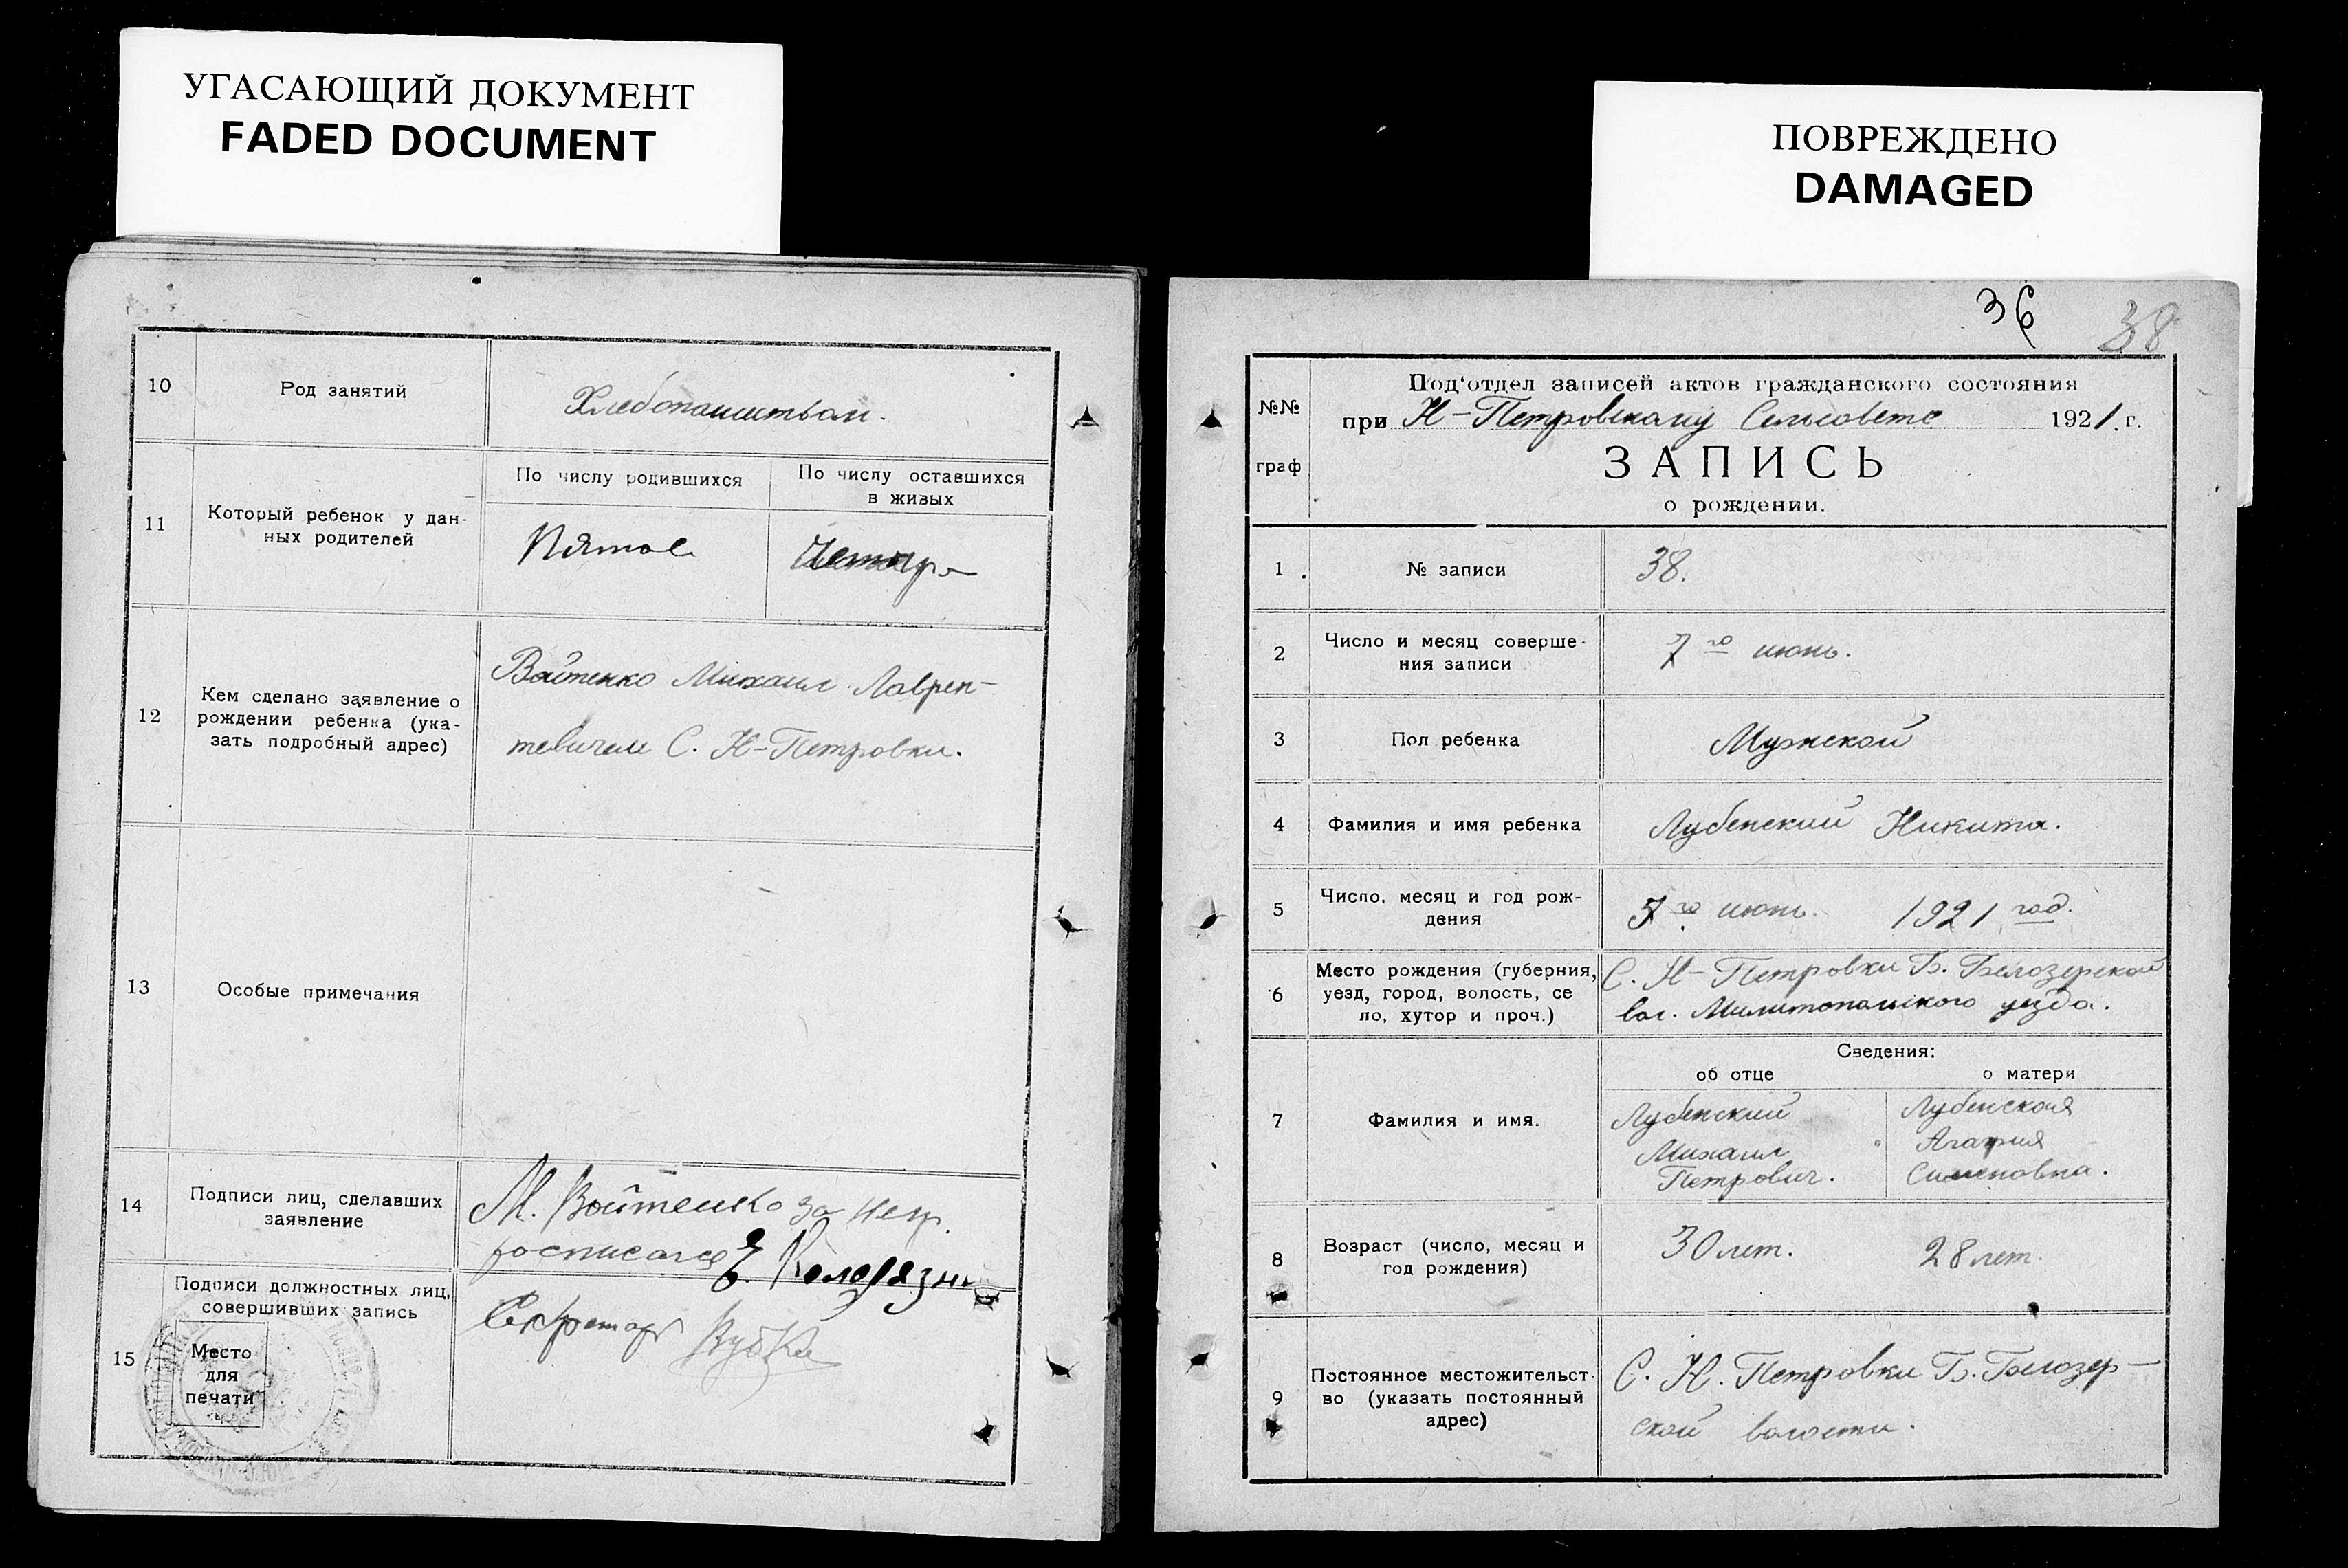 УГАСАЮЩИЙ ДОКУМЕНТ
FADED DOCUMENT
10
Род занятий
Хлебопашством.
11
Который ребенок у дан-
ных родителей
По числу родившихся
По числу оставшихся
в живых
Пятое
12
Кем сделано заявление о
рождении ребенка (ука-
зать подробный адрес)
Войтенко Михаил Лаврен-
тевичем С. Н-Петровки.
13
Особые примечания
14
Подписи лиц, сделавших
заявление
М. Войтенко за негр.
росписался
15
Подписи должностных лиц,
совершивших запись
Место
для
печати
Секретарь
ПОВРЕЖДЕНО
DAMAGED
36
38
№№
граф
Под'отдел записей актов гражданского состояния
при Н-Петровскому Сельсовете 1921 г.
ЗАПИСЬ
о рождении.
1
№ записи
38.
2
Число и месяц соверше-
ния записи
7го июнь.
3
Пол ребенка
Мужской
4
Фамилия и имя ребенка
Лубенский Никита.
5
Число, месяц и год рож-
дения
го июнь. 1921 год.
6
Место рождения (губерния,
уезд, город, волость, се
ло, хутор и проч.)
С. Н-Петровки Б. Белозерской
вол. Милитопольского уезда.
7
Фамилия и имя.
Сведения:
об отце
о матери
Лубенский
Михаил
Петрович.
Лубенская
Агафия
Сименовна.
8
Возраст (число, месяц и
год рождения)
30 лет.
28 лет.
9
Постоянное местожительст-
во (указать постоянный
адрес)
С. Н. Петровки Б. Белозер-
ской волости.